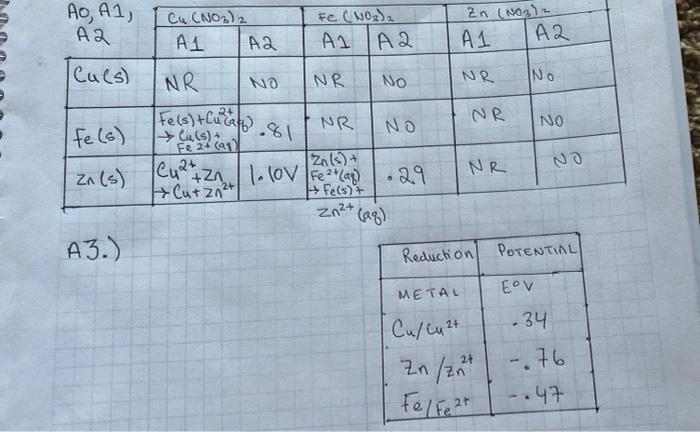 A0, A1,
A2
Cu (NO3)2 Fe (NO3)2 Zn (NO3)2
A1 A2 A1 A2 A1 A2
Cu(s) NR NO NR NO NR NO
Fe(s) Fe(s) + Cu²⁺(aq) → Cu(s) + Fe 2+ (aq) .81 NR NO NR NO
Zn(s) Cu²⁺ + Zn → Cu + Zn²⁺ 1.10V Zn(s) + Fe²⁺(aq) → Fe(s) + Zn²⁺ (aq) .29 NR NO
A3.)
Reduction POTENTIAL
METAL E°V
Cu/Cu²⁺ .34
Zn/Zn²⁺ -.76
Fe/Fe²⁺ -.47